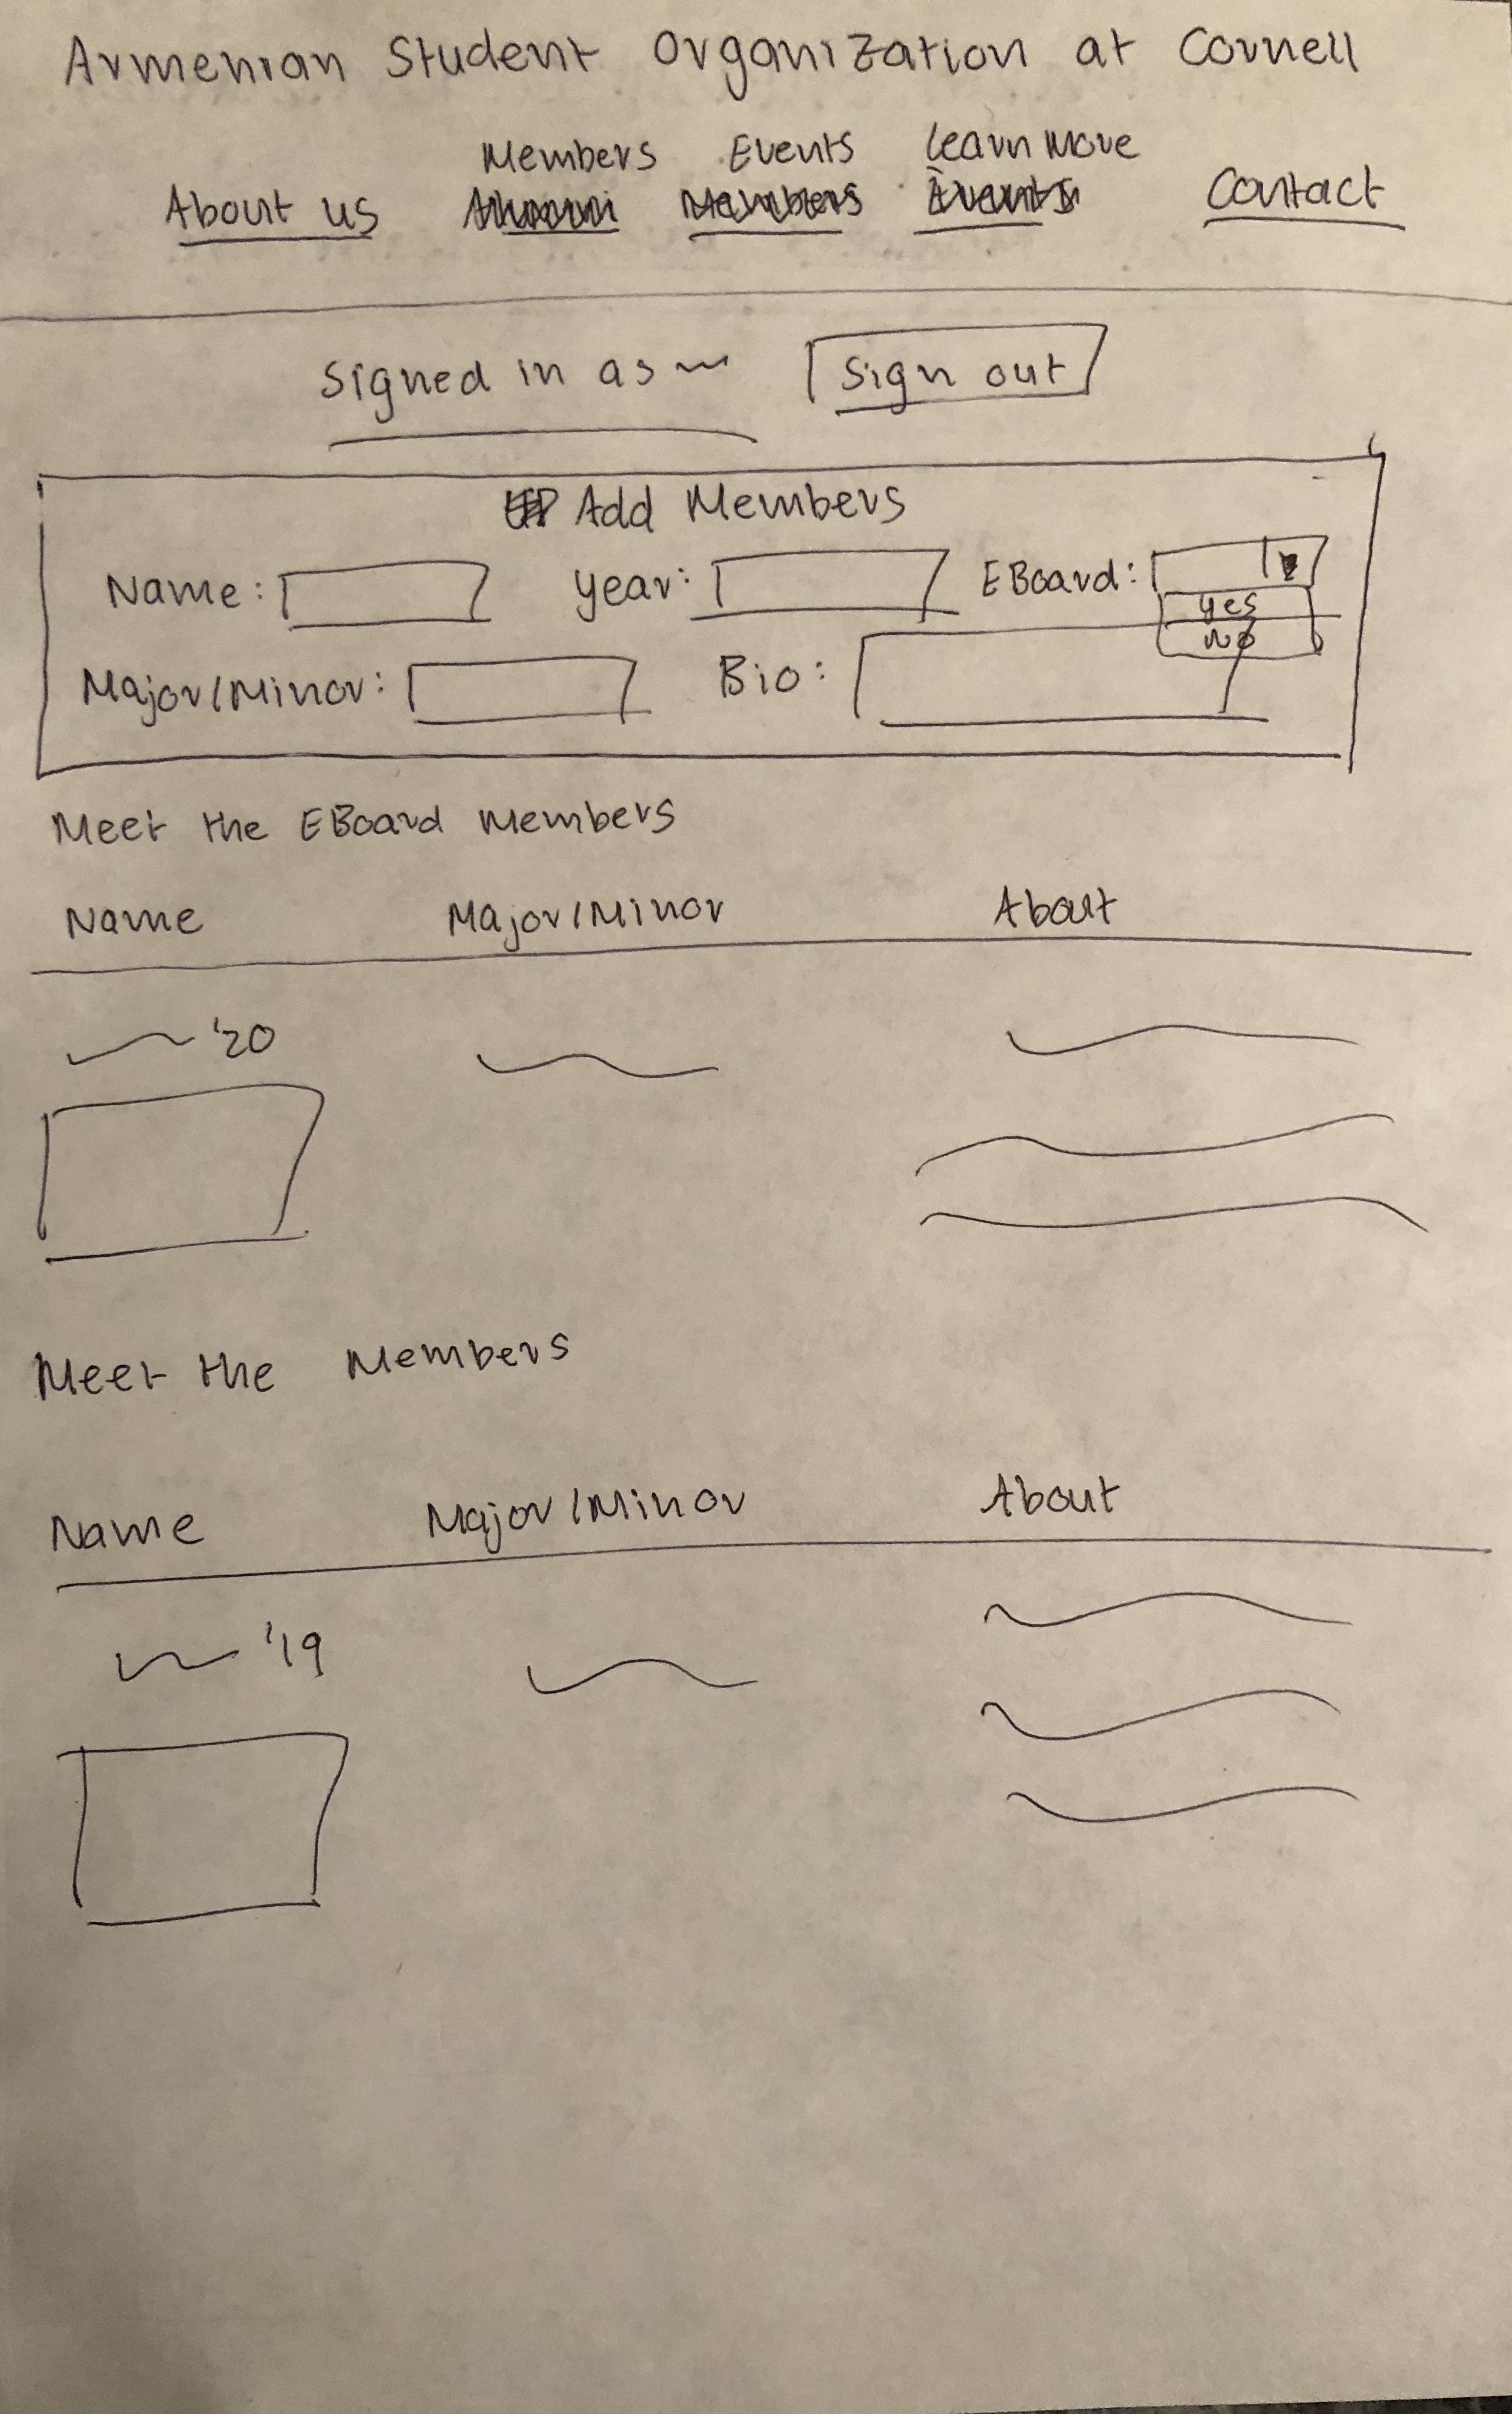 Armenian Student Organization at Cornell
Members Events Learn More
About us Members Events Contact
Signed in as
Sign out
Add Members
Name: Year: EBoard:
yes
no
Major/Minor: Bio:
Meet the EBoard Members
Name Major/Minor About
'20
Meet the Members
Name Major/Minor About
'19